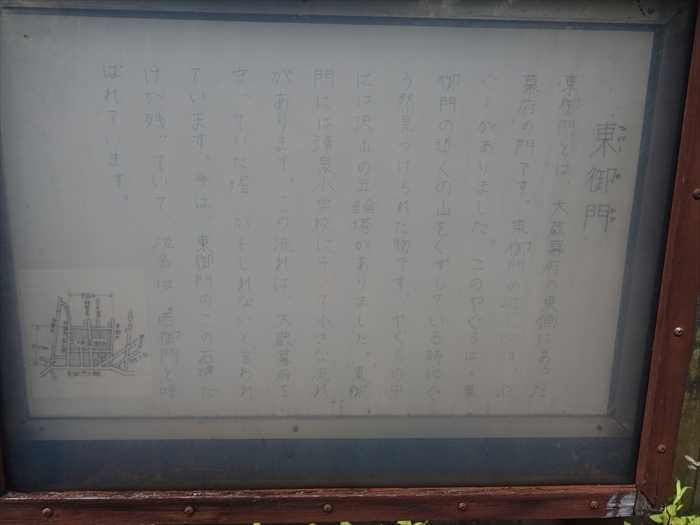 東御門
東御門とは、大蔵幕府の東側にあった
幕府の門です。東御門の近くには、
がありました。このやぐらは、東
御門の近くの山をくずしている時にぐ
う然見つけられた物です。やぐらの中
には沢山の五輪塔がありました。東御
門には清泉小学校にそって小さな流れ
があります。この流れは、大蔵幕府を
守っていた堀かもしれないと言われ
ています。今は、東御門のこの石碑だ
けが残っていて、地名は、西御門と呼
ばれています。